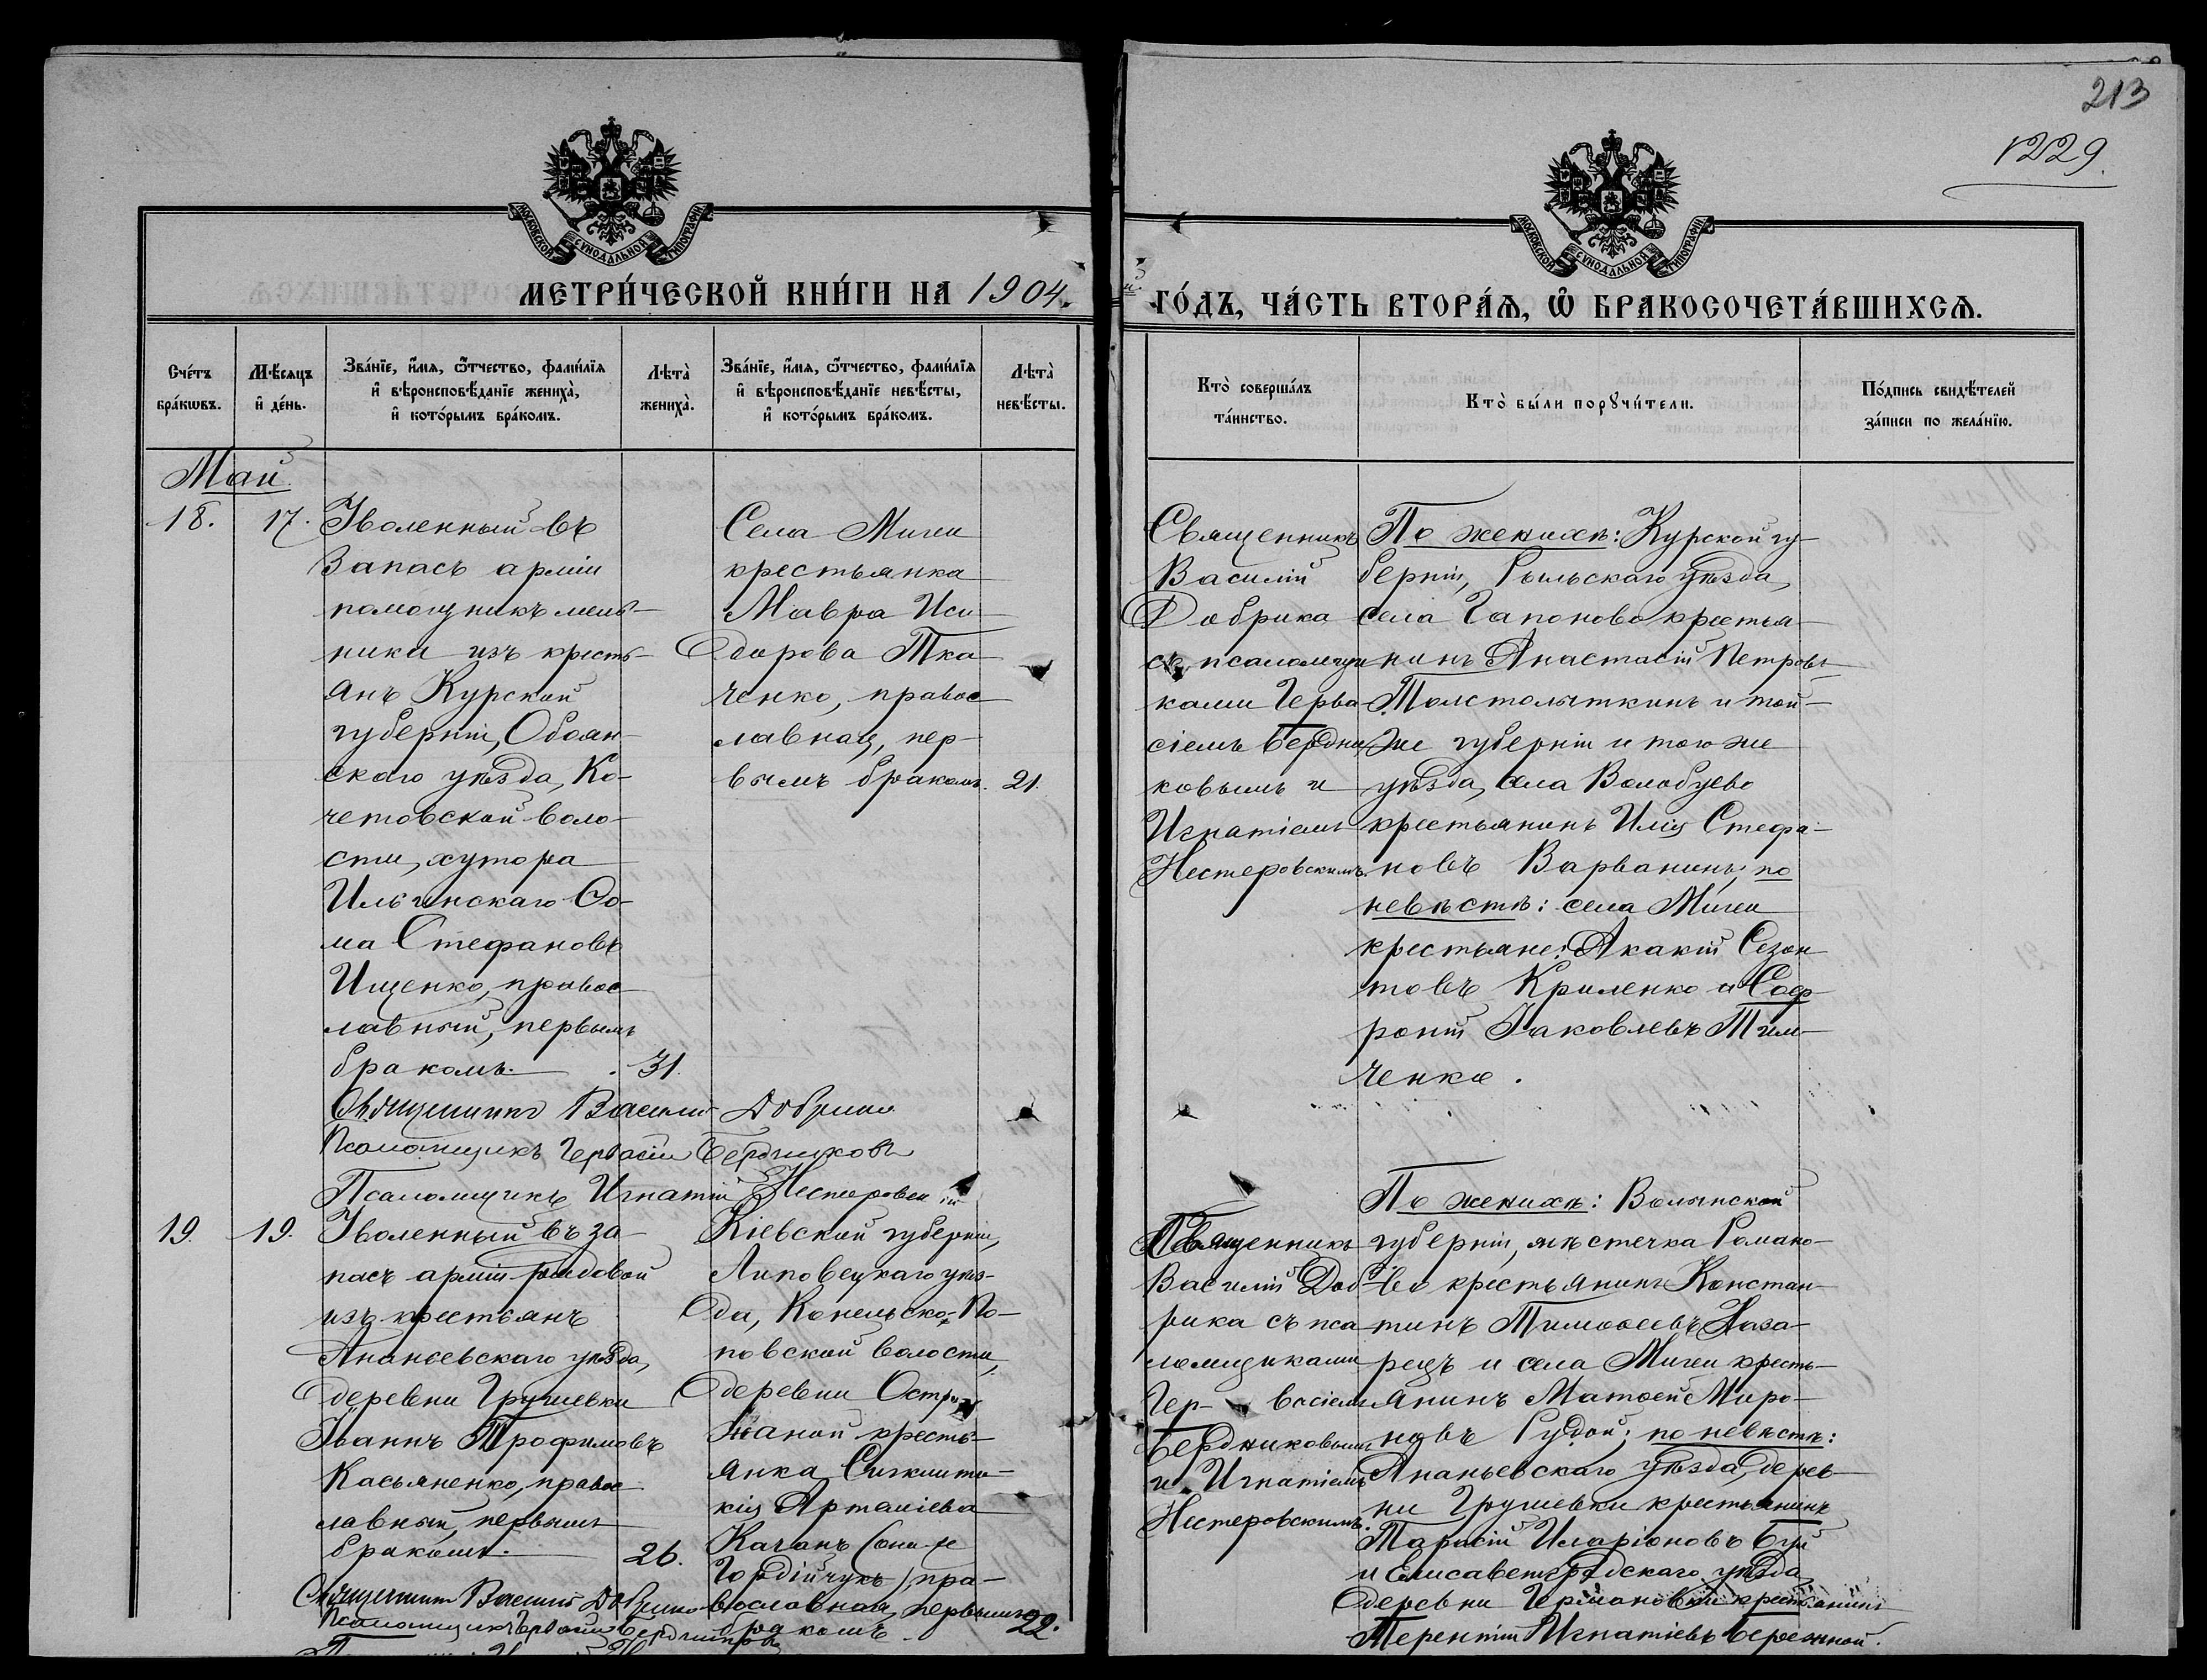 213
1229.
МОСКОВСКОЙ СѴНОДАЛЬНОЙ ТИПОГРАФІИ
МОСКОВСКОЙ СѴНОДАЛЬНОЙ ТИПОГРАФІИ
МЕТРИ́ЧЕСКОЙ КНИ́ГИ НА 1904.
ГО́ДЪ, ЧА́СТЬ ВТОРА́Ѧ, Ѽ БРАКОСОЧЕТА́ВШИХСѦ.
Сче́тъ
бра́кѡвъ.
Мѣ́сяцъ
и҆ де́нь.
Зва́нїе, и҆́мя, ѻ҆́тчество, фами́лїя
и҆ вѣроисповѣ́данїе жениха̀,
и҆ кото́рымъ бра́комъ.
Лѣта̀
жениха̀.
Зва́нїе, и҆́мя, ѻ҆́тчество, фами́лїя
и҆ вѣроисповѣ́данїе невѣ́сты,
и҆ кото́рымъ бра́комъ.
Лѣта̀
невѣ́сты.
Кто̀ соверша́лъ
та́инство.
Кто̀ бы́ли порꙋчи́тели.
По́дпись свидѣ́телей
за́писи по жела́нїю.
Май
18. 17.
Уволенный въ
запасъ арміи
помощникъ мель-
ника изъ кресть-
янъ Курской
губерніи, Обоян-
скаго уѣзда, Ко-
четовской воло-
сти, хутора
Ильинскаго Ѳо-
ма Стефановъ
Ищенко, правос-
лавный, первымъ
бракомъ. 31.
Села Мигеи
крестьянка
Мавра Иси-
дорова Тка-
ченко, правос-
лавная, пер-
вымъ бракомъ. 21.
Священникъ
Василій
Добрика
съ псаломщи-
ками Герва-
сіемъ Бердни-
ковымъ и
Игнатіемъ
Нестеровскимъ.
По женихѣ: Курской гу-
берніи, Рыльскаго уѣзда,
села Гапоново крестья-
нинъ Анастасій Петровъ
Толстолыткинъ и той-
же губерніи и того же
уѣзда, села Волобуево
крестьянинъ Илія Стефа-
новъ Варванинъ; по
невѣстѣ: села Мигеи
крестьяне: Акакій Созон-
товъ Криленко и Соф-
роній Іаковлевъ Тим-
ченко.
Священникъ Василій Добрика
Псаломщикъ Гервасій Бердниковъ
Псаломщикъ Игнатій Нестеровскій
19. 19.
Уволенный въ за-
пасъ арміи рядовой
изъ крестьянъ
Ананьевскаго уѣзда,
деревни Грушевки
Іоаннъ Трофимовъ
Касьяненко, правос-
лавный, первымъ
бракомъ. 26.
Кіевской губерніи,
Липовецкаго уѣз-
да, Конельско-По-
повской волости,
деревни
жаной кресть-
янка
кія
Качанъ (она-же
Гордійчукъ), пра-
вославная, первымъ
бракомъ. 22.
Священникъ
Василій Доб-
рика съ пса-
ломщиками
Гер-васіемъ
Бердниковымъ
и Игнатіемъ
Нестеровскимъ.
По женихѣ: Волынской
губерніи, мѣстечка Романо-
во крестьянинъ Констан-
тинъ Тимоѳеевъ Наза-
рецъ и села Мигеи кресть-
янинъ Матѳей Миро-
новъ Рудой; по невѣстѣ:
Ананьевскаго уѣзда, дерев-
ни Грушевки крестьянинъ
Тарасій Иларіоновъ Буй
и Елисаветградскаго уѣзда
деревни крестьянинъ
Терентій Игнатіевъ Бережной.
Священникъ Василій Добрика
Псаломщикъ Гервасій Бердниковъ